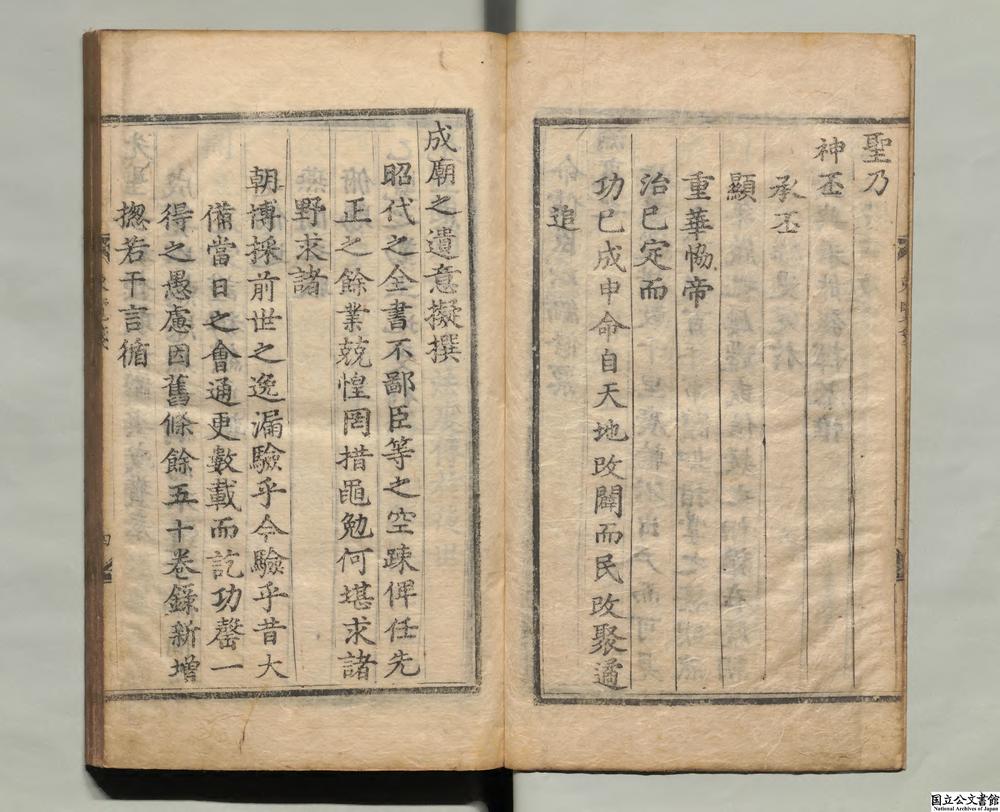 聖乃
神丕
承丕
顯
重華恊帝
治已定而
功已成申命自天地改闢而民改聚遹
追
成廟之遺意擬撰
昭代之全書不鄙臣等之空疎俾任先
正之餘業兢惶罔措黽勉何堪求諸
野求諸
朝博採前世之逸漏驗乎今驗乎昔大
備當日之會通更數載而訖功罄一
得之愚慮因舊條餘五十卷錄新增
揔若干言循
国立公文書館
National Archives of Japan